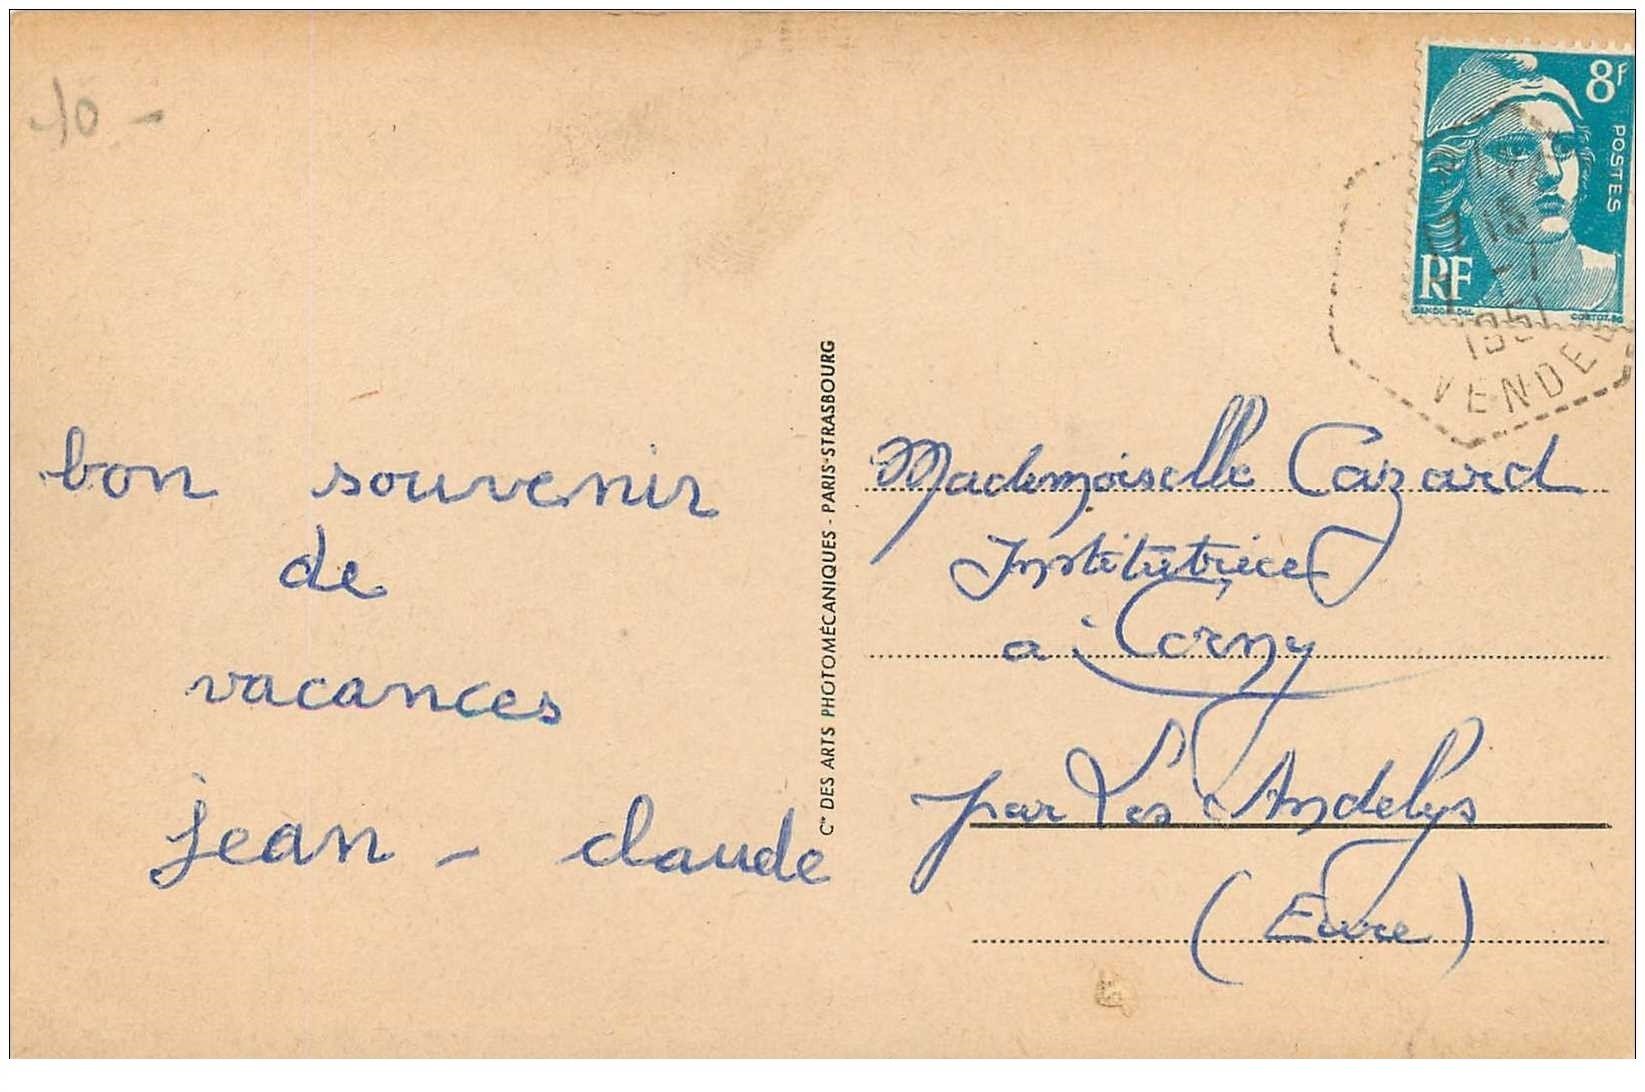 10 -
bon souvenir
de
vacances
jean - claude
Cie DES ARTS PHOTOMÉCANIQUES - PARIS-STRASBOURG
8F
POSTES
RF
GANDON.DEL.
CORTOT.SC
1951
VENDEE
Mademoiselle Cazard
Institutrice
a Corny
par Les Andelys
(Eure)